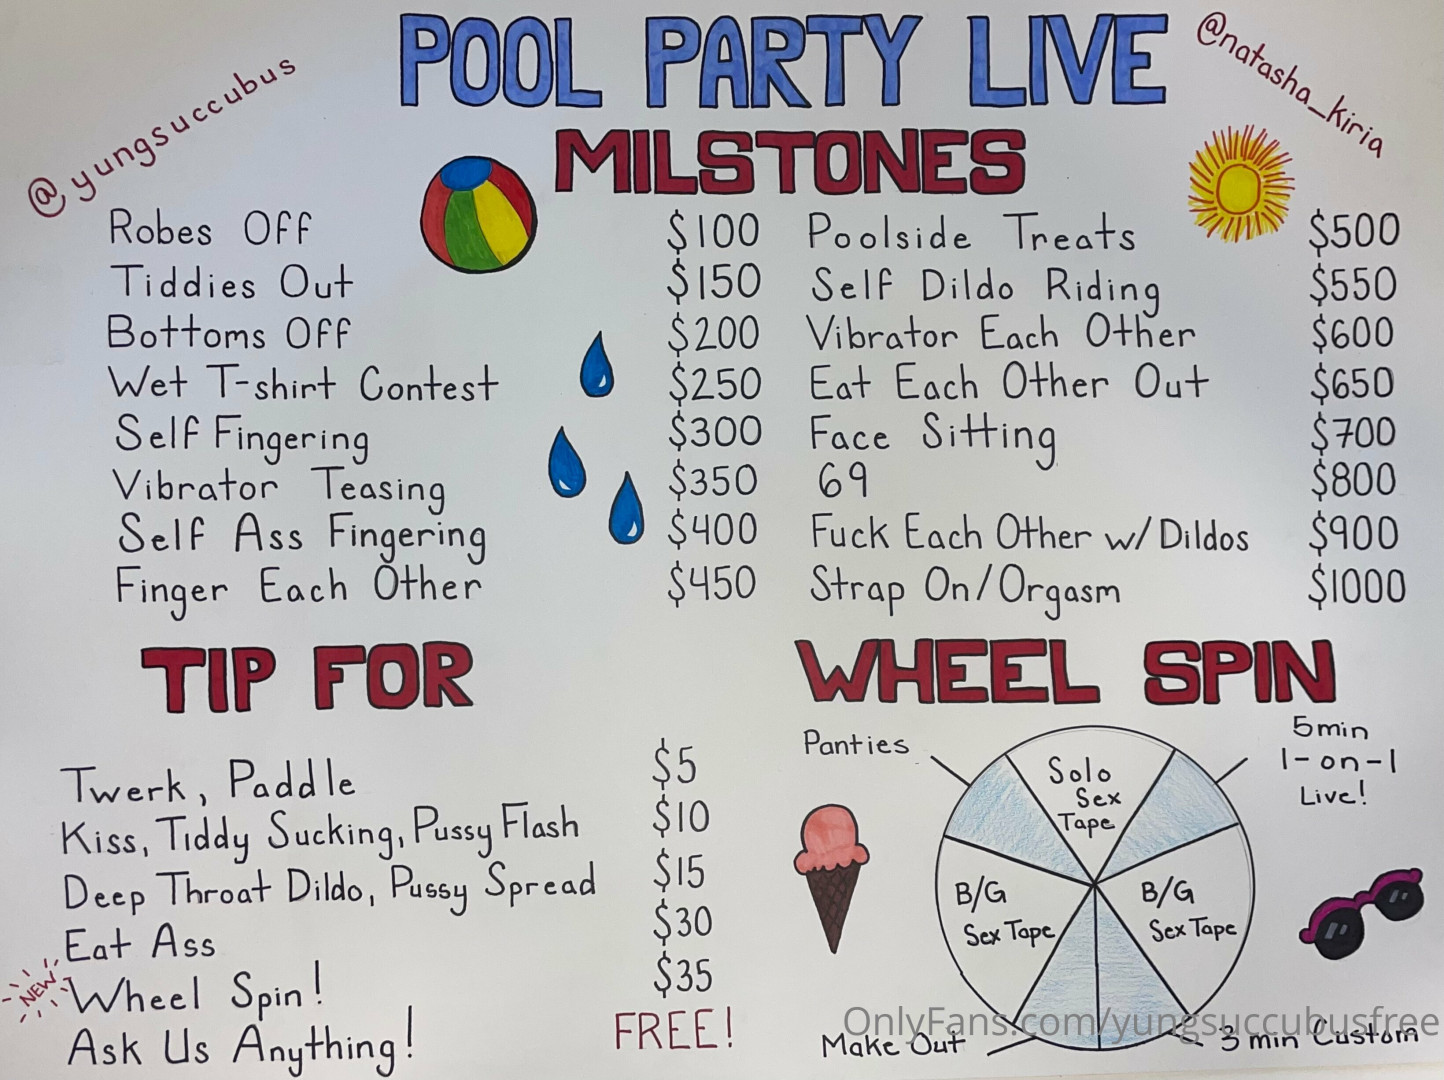 POOL PARTY LIVE
@yungsuccubus
@natasha_kiria
MILSTONES
Robes Off $100
Tiddies Out $150
Bottoms Off $200
Wet T-shirt Contest $250
Self Fingering $300
Vibrator Teasing $350
Self Ass Fingering $400
Finger Each Other $450
Poolside Treats $500
Self Dildo Riding $550
Vibrator Each Other $600
Eat Each Other Out $650
Face Sitting $700
69 $800
Fuck Each Other w/ Dildos $900
Strap On/Orgasm $1000
TIP FOR
Twerk, Paddle $5
Kiss, Tiddy Sucking, Pussy Flash $10
Deep Throat Dildo, Pussy Spread $15
Eat Ass $30
NEW Wheel Spin! $35
Ask Us Anything! FREE!
WHEEL SPIN
Panties
Solo
Sex
Tape
5min
1-on-1
Live!
B/G
Sex Tape
B/G
Sex Tape
Make Out
3 min Custom
OnlyFans.com/yungsuccubusfree